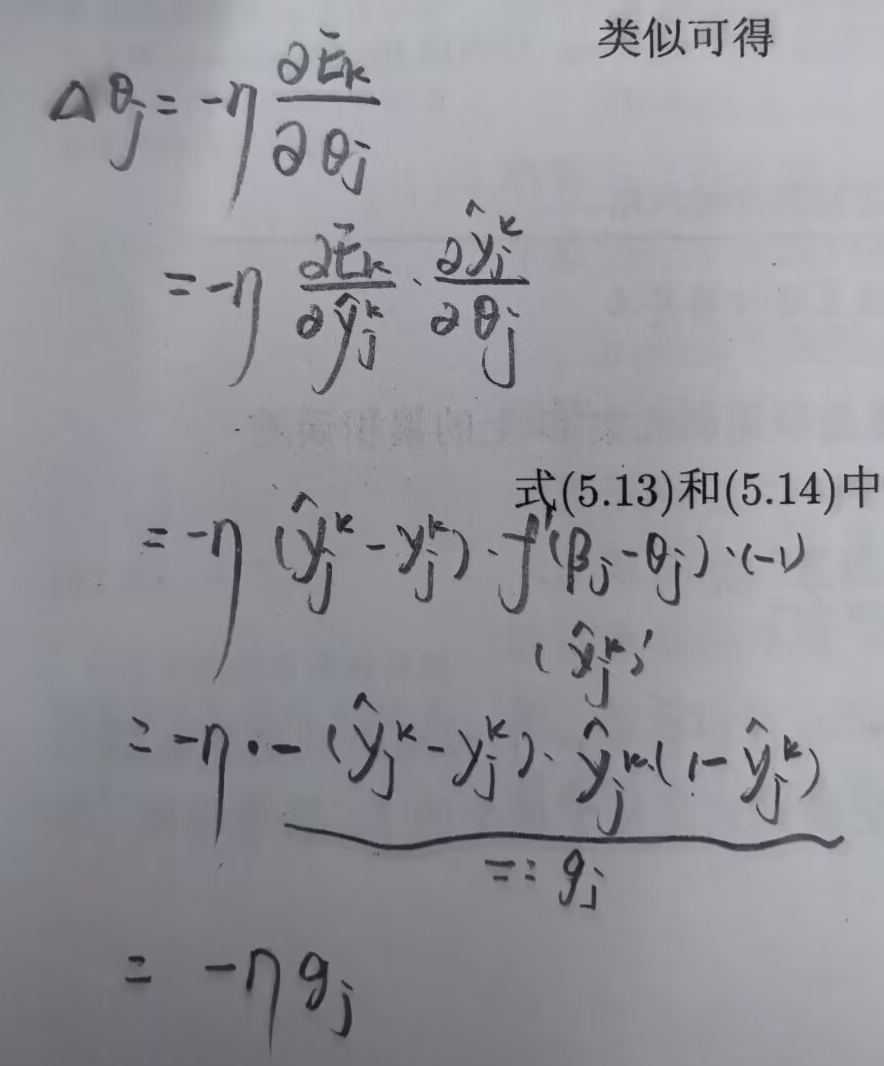 类似可得
Δθj = -η ∂Ek/∂θj
= -η ∂Ek/∂ŷj^k · ∂ŷj^k/∂θj
式(5.13)和(5.14)中
= -η (ŷj^k - yj^k) · f'(βj - θj) · (-1)
(ŷj^k)'
= -η · - (ŷj^k - yj^k) · ŷj^k · (1 - ŷj^k)
=: gj
= -η gj